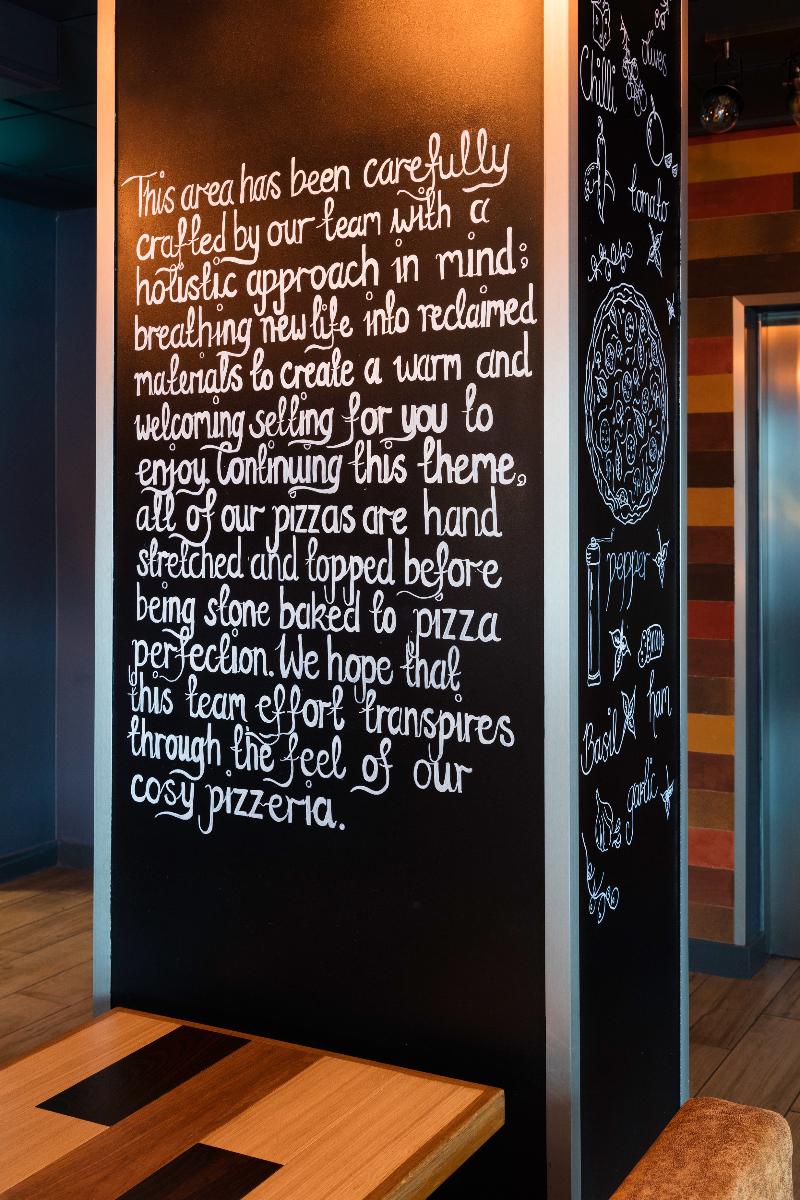 This area has been carefully
crafted by our team with a
holistic approach in mind;
breathing new life into reclaimed
materials to create a warm and
welcoming setting for you to
enjoy. Continuing this theme,
all of our pizzas are hand
stretched and topped before
being stone baked to pizza
perfection. We hope that
this team effort transpires
through the feel of our
cosy pizzeria.
olives
Chilli
tomato
pepper
ham
Basil
garlic